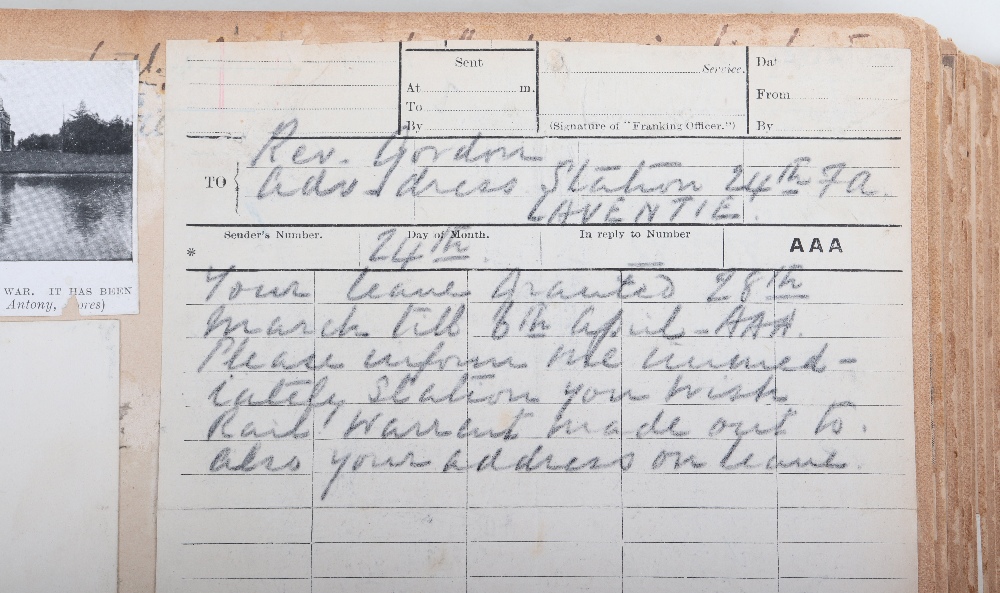 Sent
At m.
To
By
Service.
(Signature of "Franking Officer.")
Dat
From
By
TO
Rev. Gordon
Adv. dress Station 24th Fa.
LAVENTIE.
Sender's Number.
Day of Month.
In reply to Number
AAA
*
24th.
Your leave Granted 28th
March till 6th April - AAA.
Please inform me immed-
iately Station you wish
Rail Warrant made out to.
Also your address on leave.
WAR. IT HAS BEEN
Antony, res)